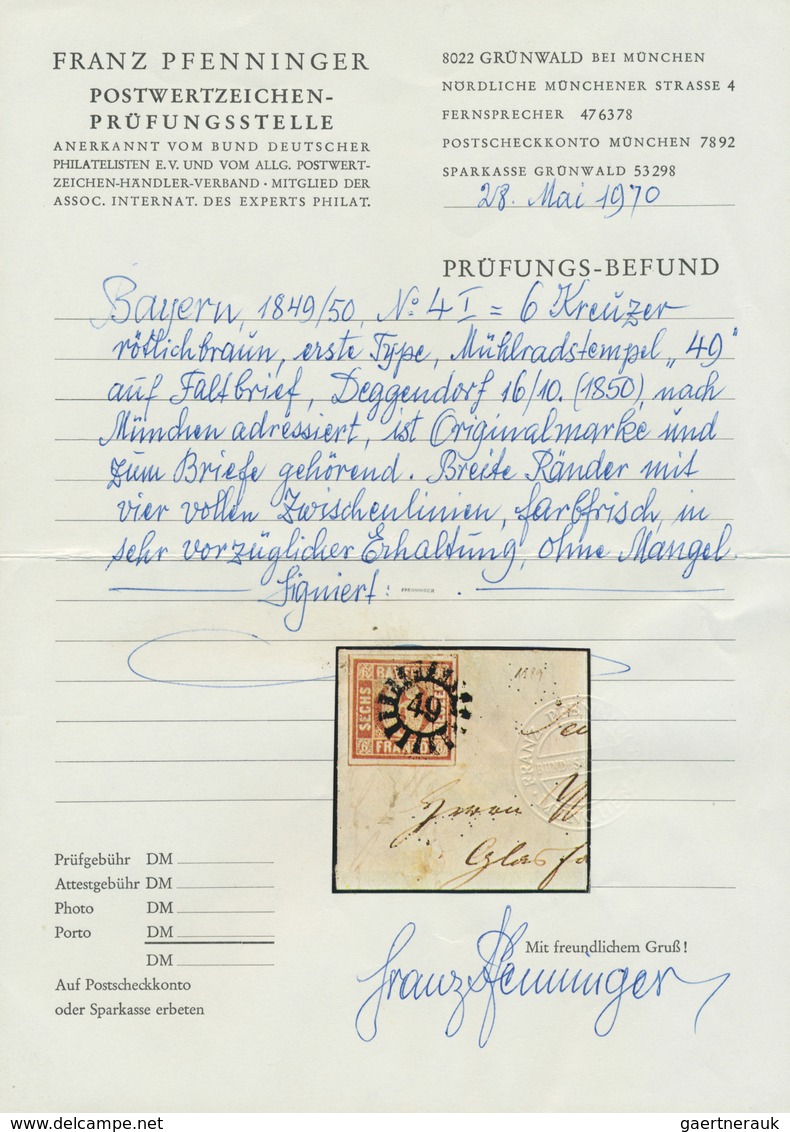 FRANZ PFENNINGER
POSTWERTZEICHEN-
PRÜFUNGSSTELLE
ANERKANNT VOM BUND DEUTSCHER
PHILATELISTEN E.V. UND VOM ALLG. POSTWERT-
ZEICHEN-HÄNDLER-VERBAND · MITGLIED DER
ASSOC. INTERNAT. DES EXPERTS PHILAT.
8022 GRÜNWALD BEI MÜNCHEN
NÖRDLICHE MÜNCHENER STRASSE 4
FERNSPRECHER 476378
POSTSCHECKKONTO MÜNCHEN 7892
SPARKASSE GRÜNWALD 53298
28. Mai 1970
PRÜFUNGS-BEFUND
Bayern, 1849/50, No. 4 I = 6 Kreuzer
rötlichbraun, erste Type, Mühlradstempel „49"
auf Faltbrief, Deggendorf 16/10. (1850), nach
München adressiert, ist Originalmarke und
zum Briefe gehörend. Breite Ränder mit
vier vollen Zwischenlinien, farbfrisch, in
sehr vorzüglicher Erhaltung, ohne Mangel.
Signiert: PFENNINGER .
SECHS
49
FRANCO
Herrn
Prüfgebühr DM
Attestgebühr DM
Photo DM
Porto DM
DM
Auf Postscheckkonto
oder Sparkasse erbeten
Mit freundlichem Gruß!
Franz Pfenninger
gaertnerauk
www.delcampe.net